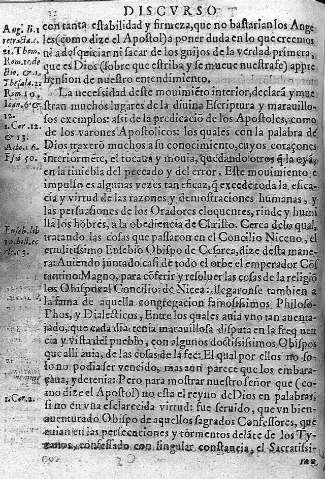 DISCVRSO
con tanta estabilidad y firmeza, que no bastarian los Ange
les (como dize el Apostol) a poner duda en lo que creemos
ni a desquiciar ni sacar de los guijos de la verdad primera,
que es Dios (sobre que estriba y se mueue nuestra fe) appre
hension de nuestro entendimiento.
La necessidad deste mouimiẽto interior, declarã y mue
stran muchos lugares de la diuina Escriptura y marauillo
sos exemplos: assi de la predicaciõ de los Apostoles, como
de los varones Apostolicos: los quales con la palabra de
Dios traxerõ muchos a su conocimiento, cuyos coraçones
interiormẽte, el tocaua y mouia, quedando otros
en la tiniebla del peccado y del error. Este mouimiento e
impulso es algunas vezes tan eficaz, q̃ excede toda la efica
cia y virtud de las razones y demostraciones humanas, y
las persuasiones de los Oradores eloquentes, rinde y humi
lla los hõbres, a la obediencia de Christo. Cerca de lo qual,
tratando las cosas que passaron en el Concilio Niceno, el
eruditissimo Eusebio Obispo de Cesarea, dize desta mane
ra: Auiendo juntado casi de todo el orbe el emperador Cõs
tantino Magno, para cõferir y resoluer las cosas de la religiõ
los Obispos al Concilio de Nicea: llegaronse tambien a
la fama de aquella congregacion famosissimos Philoso
Phos, y Dialecticos, Entre los quales auia vno tan auenta
jado, que cada dia tenia marauillosa disputa en la freq̃uen
cia y vista del pueblo, con algunos doctissimos Obispos
que alli auia, de las cosas de la fee: El qual por ellos no so
lo no podia ser vencido, mas aun parece que los embara
çaua, y detenia: Pero para mostrar nuestro señor que (co
mo dize el Apostol) no esta el reyno de Dios en palabras,
si no en vna esclarecida virtud: fue seruido, que vn bien
auenturado Obispo de aquellos sagrados Confessores, que
auian en las persecuciones y tormentos delãte de los Ty
ranos, confessado con singular constancia, el Sacratissi-